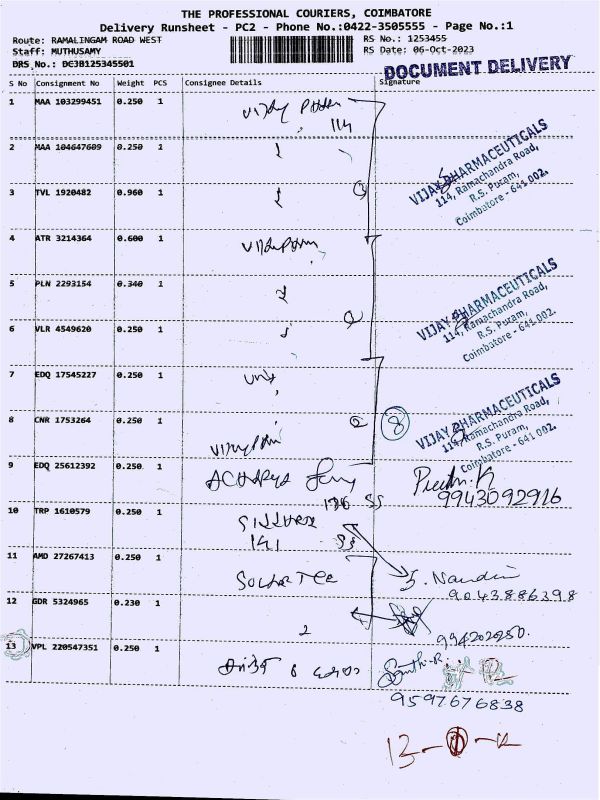 THE PROFESSIONAL COURIERS, COIMBATORE
Delivery Runsheet - PC2 - Phone No.:0422-3505555 - Page No.:1
Route: RAMALINGAM ROAD WEST
RS No.: 1253455
Staff: MUTHUSAMY
RS Date: 06-Oct-2023
DRS No.: DE3B125345501
DOCUMENT DELIVERY
S No Consignment No Weight PCS Consignee Details Signature
1 MAA 103299451 0.250 1
114
2 MAA 104647609 0.250 1
VIJAY PHARMACEUTICALS
114, Ramachandra Road,
R.S. Puram,
Coimbatore - 641 002.
3 TVL 1920482 0.960 1
4 ATR 3214364 0.600 1
5 PLN 2293154 0.340 1
VIJAY PHARMACEUTICALS
114, Ramachandra Road,
R.S. Puram,
Coimbatore - 641 002.
6 VLR 4549620 0.250 1
7 EDQ 17545227 0.250 1
VIJAY PHARMACEUTICALS
114, Ramachandra Road,
R.S. Puram,
Coimbatore - 641 002.
8 CNR 1753264 0.250 1
8
9 EDQ 25612392 0.250 1 ACHARYA
9943092916
10 TRP 1610579 0.250 1
11 AMD 27267413 0.250 1
S. Nandini
9043886398
12 GDR 5324965 0.230 1
2
994202950.
13 VPL 220547351 0.250 1
9597676838